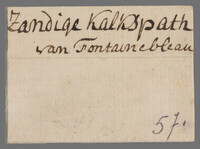 Zandige Kalkspath
van Fontainebleau
57.